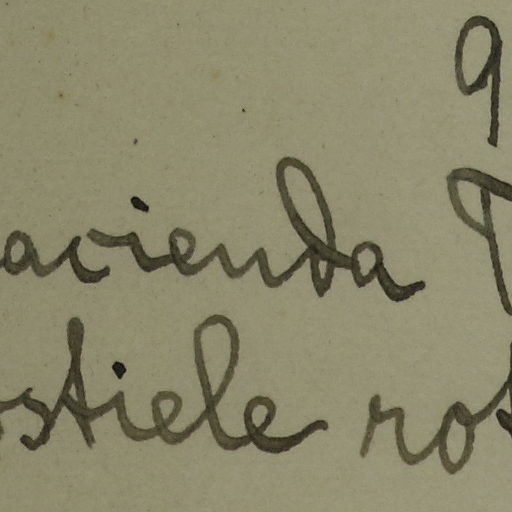 9
acienda T
ostiele rot